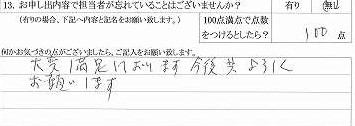 13. お申し出内容で担当者が忘れていることはございませんか? 有り 無し
(有りの場合、下記へ内容と記名をお願い致します。) 100点満点で点数をつけるとしたら? 100 点
何かお気づきの点がございましたら、ご記入をお願い致します。
大変満足しております 今後共よろしく
お願いします